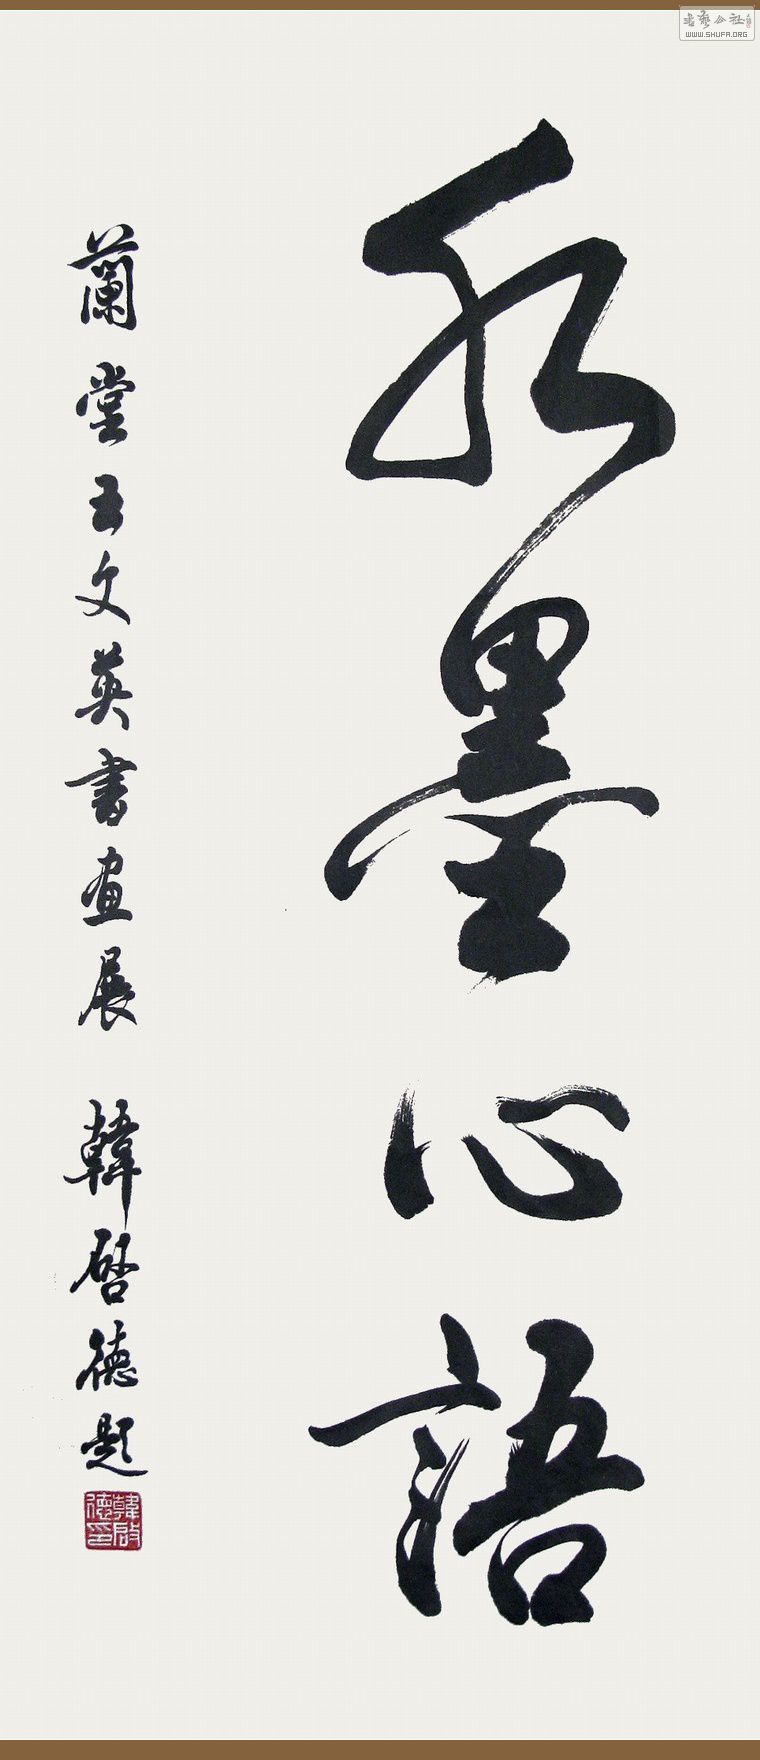 書藝公社
WWW.SHUFA.ORG
水墨心語
蘭堂王文英書画展 韓啓德題
韓啟德印